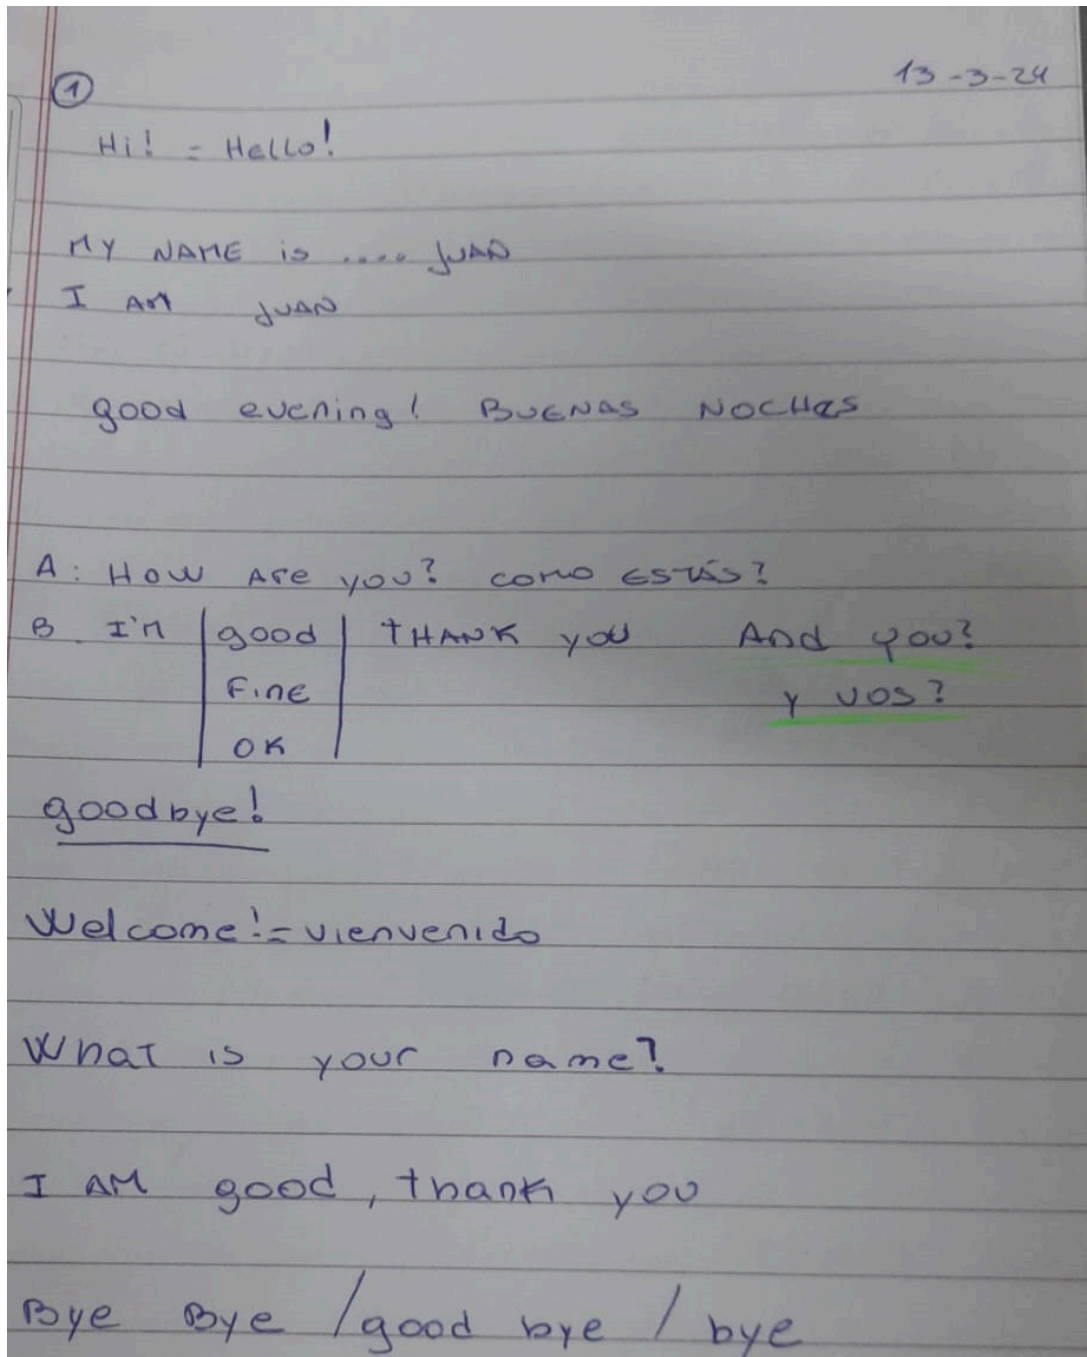 ① 13-3-24
Hi! = Hello!
MY NAME is .... JUAN
I AM JUAN
good evening! BUENAS NOCHES
A: HOW Are you? como ESTÁS?
B I'M good THANK you And you?
Fine y vos?
OK
goodbye!
Welcome! = vienvenido
What is your name?
I AM good, thank you
Bye Bye / good bye / bye